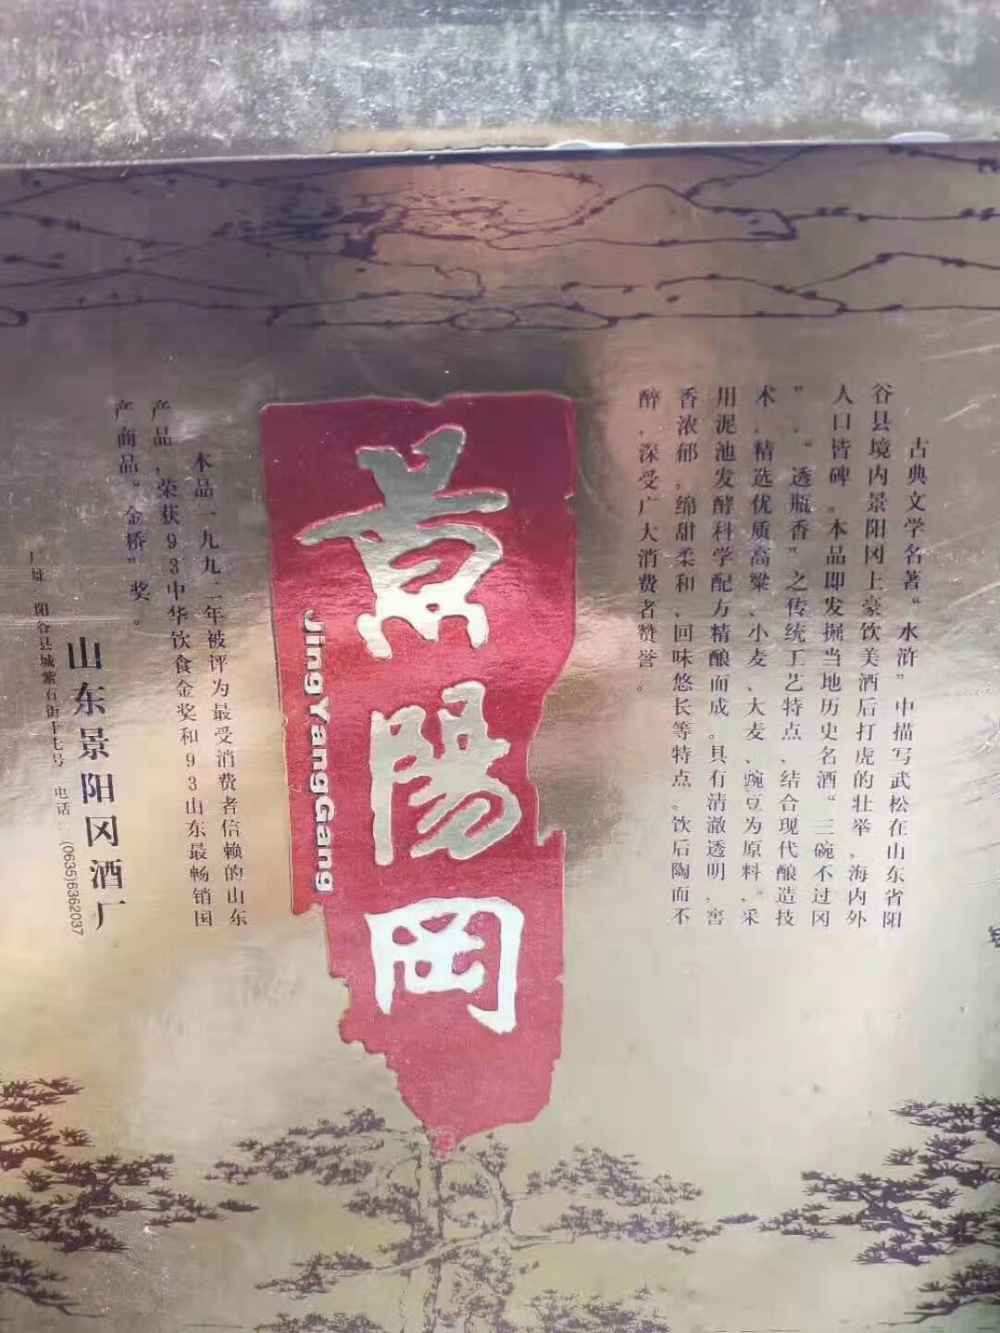 古典文学名著“水浒”中描写武松在山东省阳
谷县境内景阳冈上豪饮美酒后打虎的壮举，海内外
人口皆碑。本品即发掘当地历史名酒“三碗不过冈
”、“透瓶香”之传统工艺特点，结合现代酿造技
术，精选优质高粱、小麦、大麦、豌豆为原料。采
用泥池发酵科学配方精酿而成。具有清澈透明，窖
香浓郁，绵甜柔和，回味悠长等特点。饮后陶而不
醉，深受广大消费者赞誉。
景陽岡
JingYangGang
本品一九九二年被评为最受消费者信赖的山东
产品，荣获93中华饮食金奖和93山东最畅销国
产商品。金桥”奖。
山东景阳冈酒厂
址：阳谷县城紫石街十七号 电话：(0635)6362037